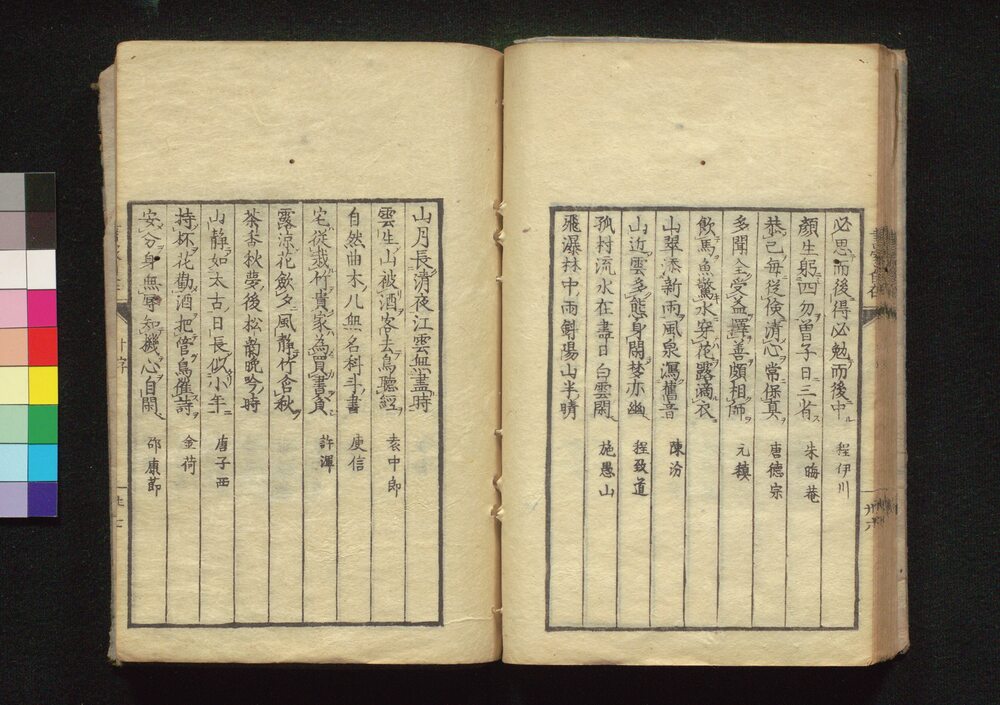 必思而後得必勉而後中 程伊川
顔生躬四勿曽子日三省 朱晦菴
恭己毎従倹清心常保真 唐德宗
多聞全受益擇善頗相師 元稹
飲馬魚驚水穿花露滴衣
山翠添新雨風泉瀉舊音 陳汾
山近雲多態身閑梦亦幽 程致道
孤村流水在盡日白雲閑 施愚山
飛瀑林中雨斜陽山半晴
山月長清夜江雲無盡時
雲生山被酒客去鳥聽經 袁中郎
自然曲木几無名科斗書 庾信
宅従栽竹貴家為買書貧 許渾
露涼花飲夕風静竹含秋
茶香秋夢後松韵晩吟時
山静如太古日長似小年 唐子西
持杯花勸酒把管鳥催詩 金荷
安分身無辱知機心自閑 邵康節